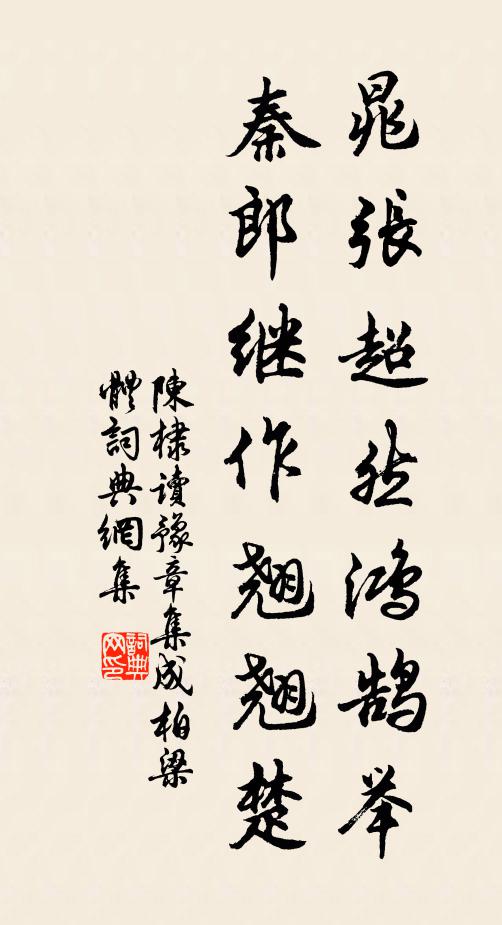 晁張超然鴻鵠举
秦郎继作翘翘楚
陳棣讀豫章集成柏梁
體詞典網集
詞典网印